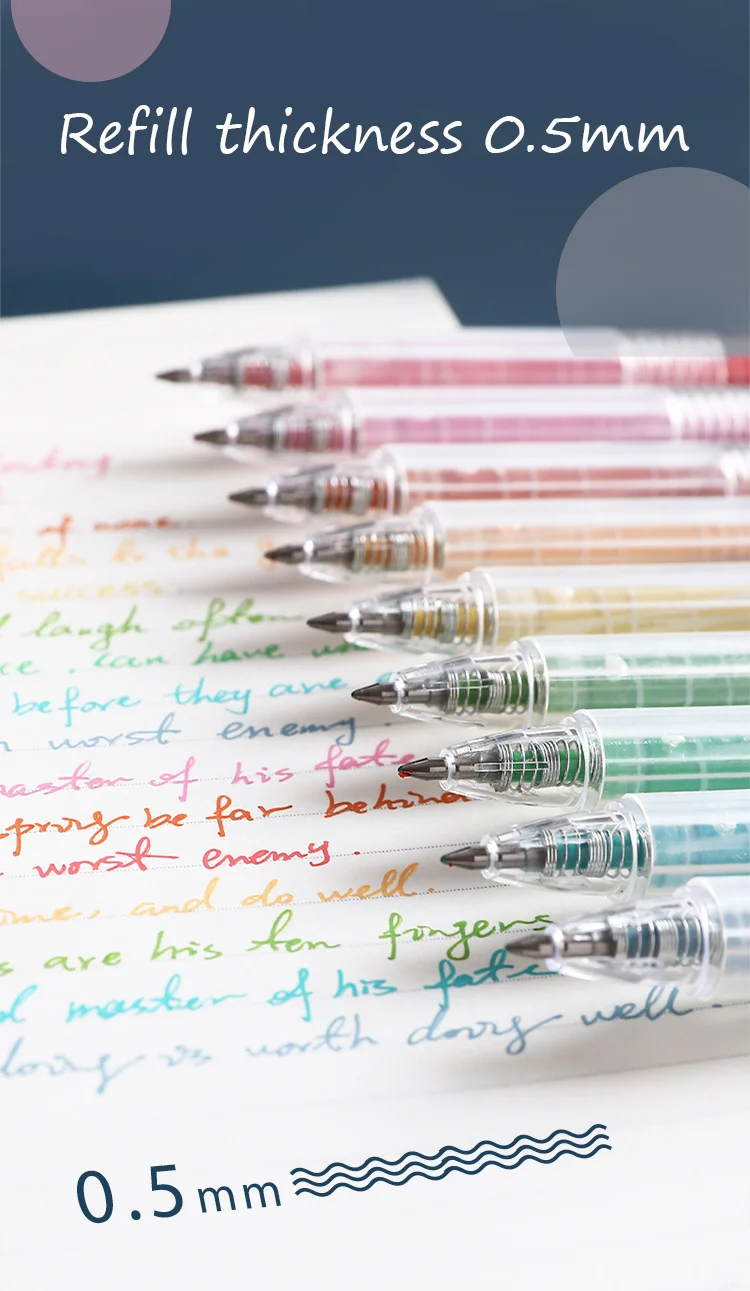 Refill thickness 0.5mm
of none.
falls to the
success
laugh often
ce, can have
before they are
worst enemy.
master of his fate
spring be far behind
worst enemy.
ome, and do well.
s are his ten fingers
l master of his fate
doing is worth doing well.
0.5mm